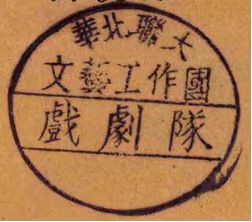 華北聯大
文藝工作團
戲劇隊